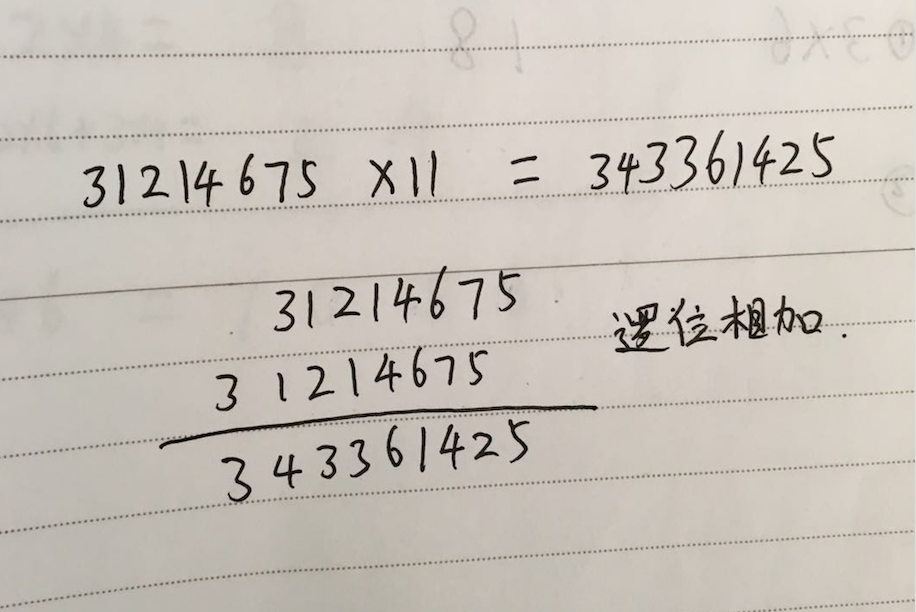 31214675 ×11 = 343361425
31214675
31214675
逻位相加.
343361425